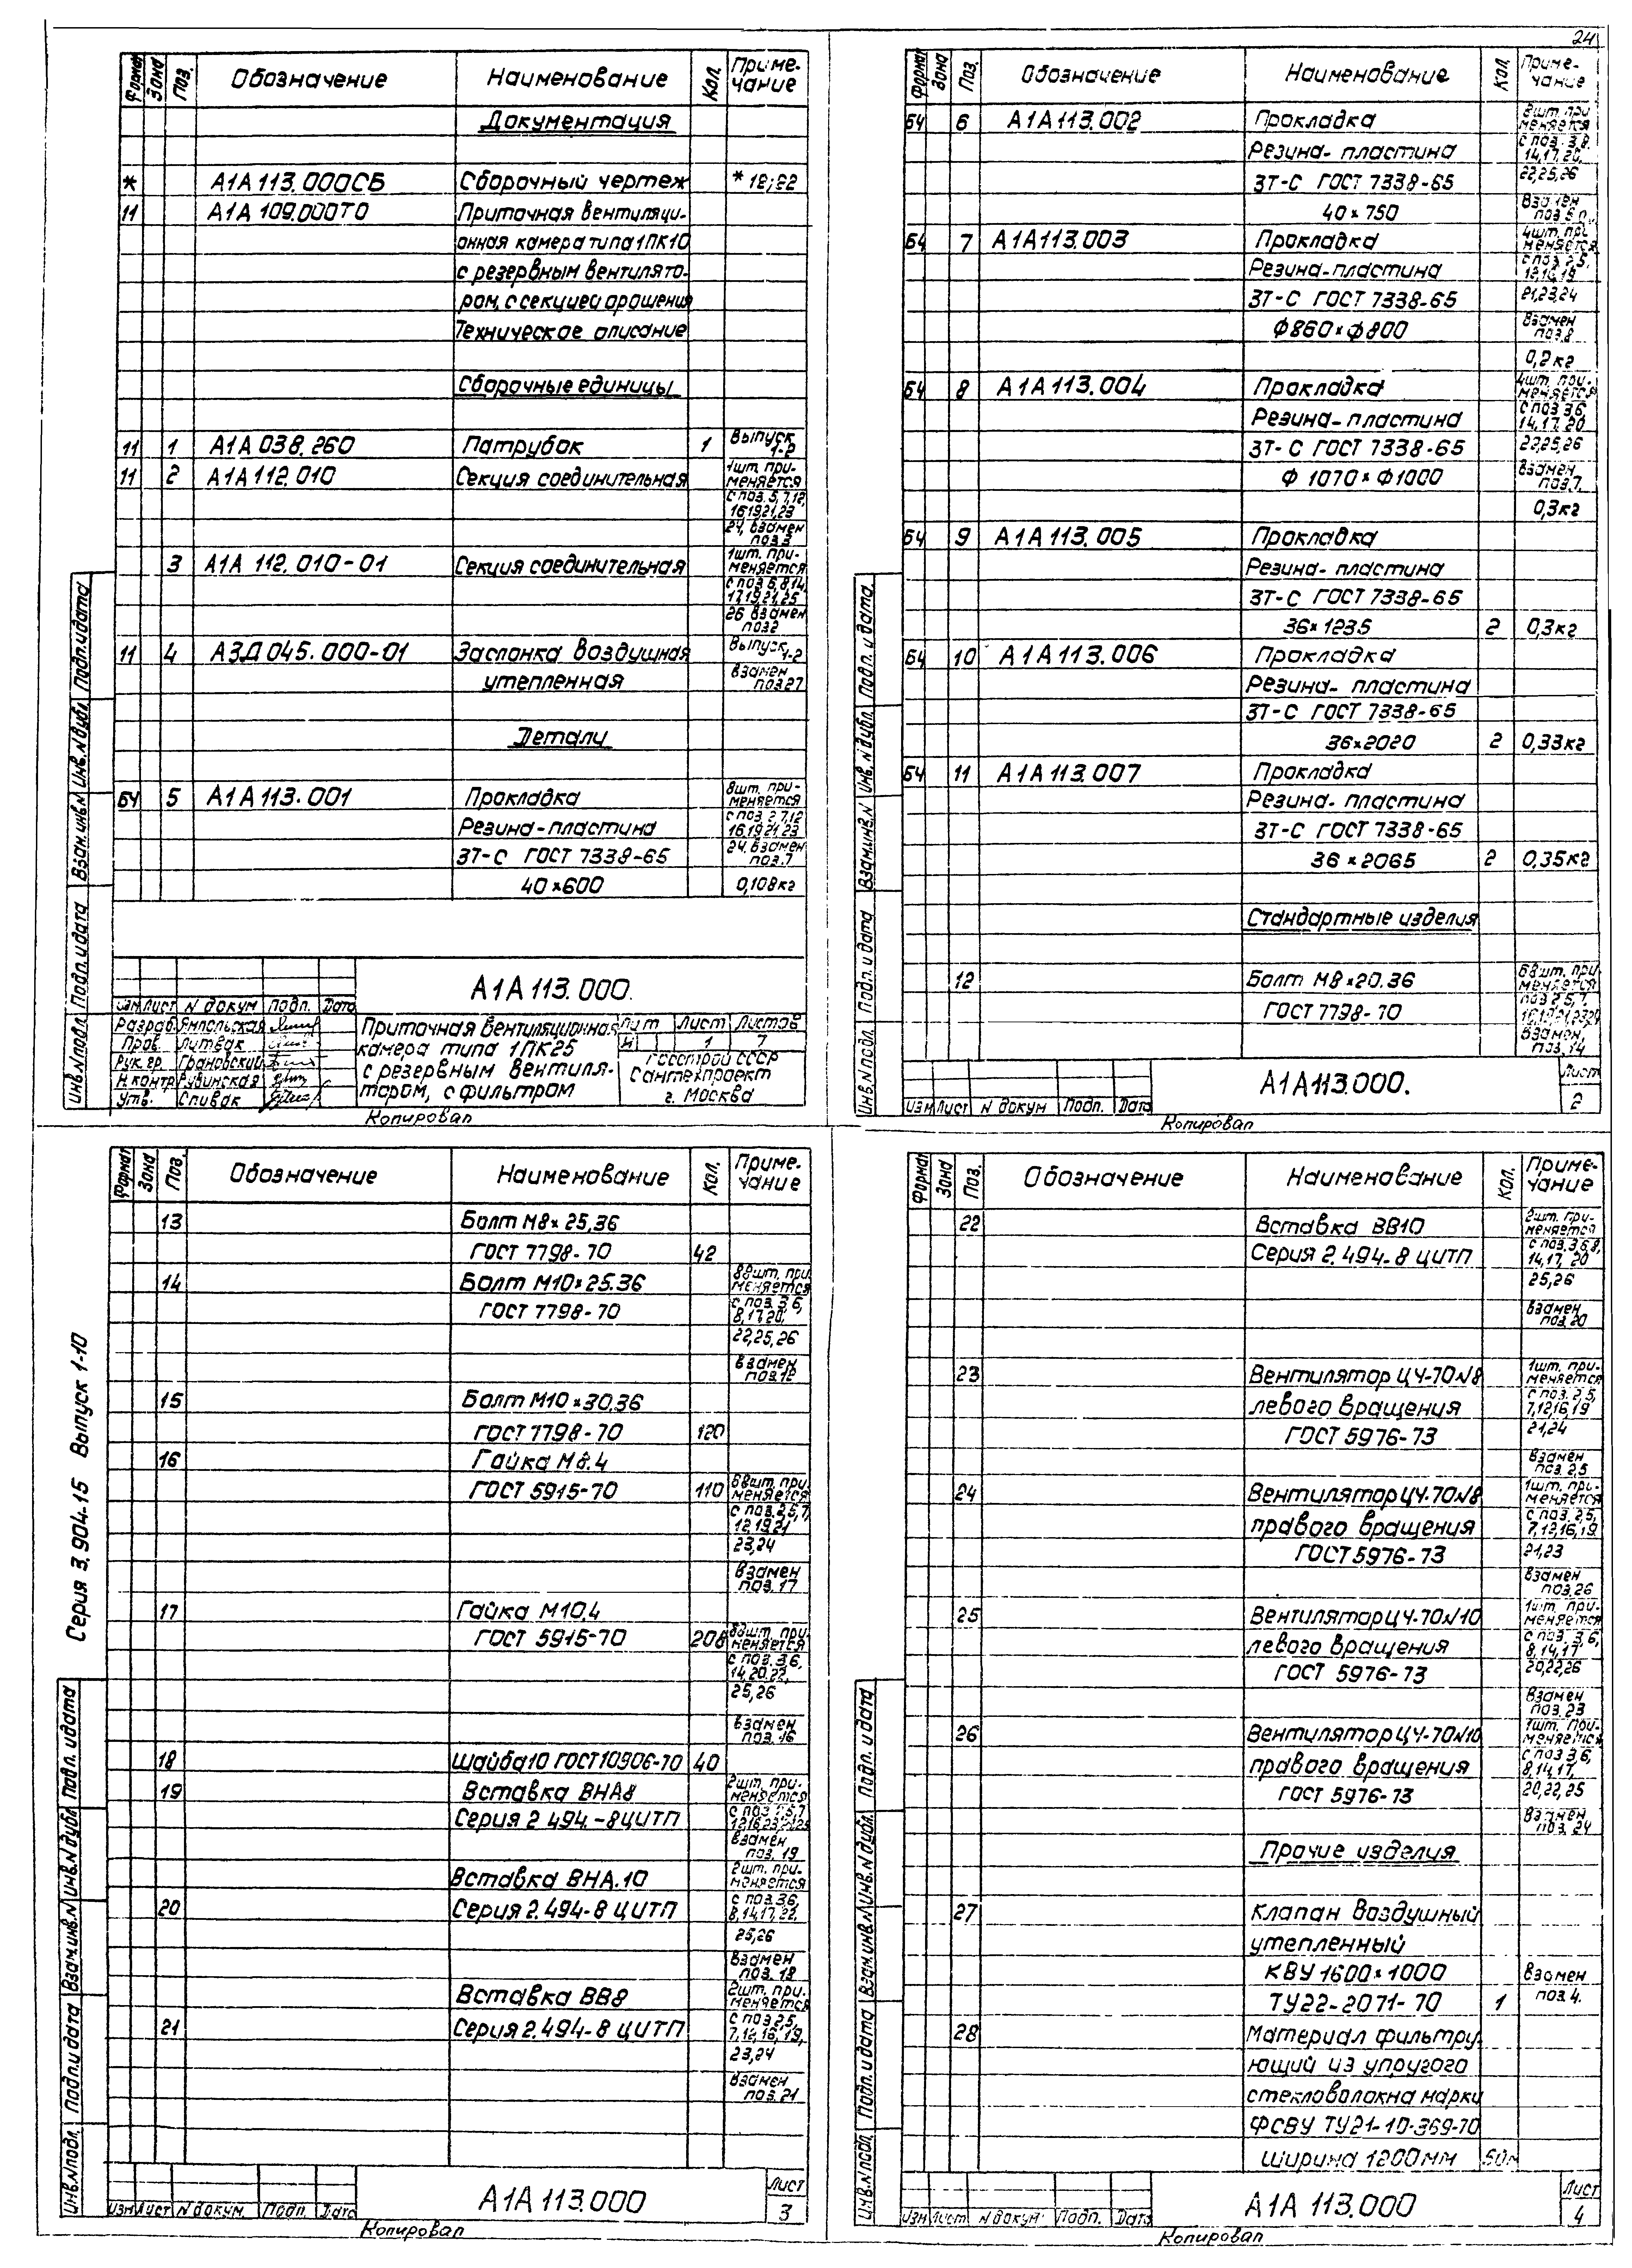 24
Формат Зона Поз. Обозначение Наименование Кол. Приме-
чание
Документация
* А1А113.000СБ Сборочный чертеж * 12;22
11 А1А 109.000ТО Приточная вентиляци-
онная камера типа 1ПК10
с резервным вентилято-
ром, с секцией орошения
Техническое описание
Сборочные единицы
11 1 А1А 038.260 Патрубок 1 Выпуск
1-2
11 2 А1А 112.010 Секция соединительная 1шт. при-
меняется
с поз. 5,7,12,
16,19,21,23
24, взамен
поз3
3 А1А 112.010-01 Секция соединительная 1шт. при-
меняется
с поз 6,8,14,
17,19,21,25
26 взамен
поз2
11 4 А3Д 045.000-01 Заслонка воздушная Выпуск 1-2
утепленная взамен
поз27
Детали
БЧ 5 А1А 113.001 Прокладка 8шт. при-
меняется
Резина-пластина с поз 2,7,12
16,19,21,23
3Т-С ГОСТ 7338-65 24, взамен
поз.7
40×600 0,108кг
А1А 113.000.
Изм Лист N докум Подп. Дата
Разраб. Ямпольская
Пров. Литвак
Рук.гр. Грановский
Н.контр Рувинская
Утв. Спивак
Приточная вентиляционная
камера типа 1ПК25
с резервным вентиля-
тором, с фильтром
Лит Лист Листов
И 1 7
Госстрой СССР
Сантехпроект
г. Москва
Копировал
Инв.N подл. Подп. и дата Взам.инв.N Инв.N дубл. Подп. и дата
Формат Зона Поз. Обозначение Наименование Кол. Приме-
чание
БЧ 6 А1А113.002 Прокладка 8шт. при
меняется
Резина-пластина с поз. 3,8
14,17,20,
3Т-С ГОСТ 7338-65 22,25,26
40×750 Взамен
БЧ 7 А1А113.003 Прокладка 4шт. при
меняется
Резина-пластина с поз 2,5,
12,16,19
3Т-С ГОСТ 7338-65 21,23,24
Ф860×Ф800 Взамен
поз.8
0,2кг
БЧ 8 А1А113.004 Прокладка 4шт. при-
меняется
Резина-пластина с поз 3,6,
14,17,20
3Т-С ГОСТ 7338-65 22,25,26
Ф 1070×Ф1000 взамен
поз.7,
0,3кг
БЧ 9 А1А113.005 Прокладка
Резина-пластина
3Т-С ГОСТ 7338-65
36×1235 2 0,3кг
БЧ 10 А1А113.006 Прокладка
Резина-пластина
3Т-С ГОСТ 7338-65
36×2020 2 0,33кг
БЧ 11 А1А113.007 Прокладка
Резина-пластина
3Т-С ГОСТ 7338-65
36×2065 2 0,35кг
Стандартные изделия
12 Болт М8×20.36 68шт. при
меняется
ГОСТ 7798-70 поз 2,5,7,
Взамен,
поз.14
А1А113.000.
Изм Лист N докум Подп. Дата
Лист
2
Копировал
Инв.N подл. Подп. и дата Взам.инв.N Инв.N дубл. Подп. и дата
Серия 3.904-15 Выпуск 1-10
Формат Зона Поз. Обозначение Наименование Кол. Приме-
чание
13 Болт М8×25.36
ГОСТ 7798-70 42
14 Болт М10×25.36 88шт. при
меняется
ГОСТ 7798-70 с поз. 3,6,
8,17,20,
22,25,26
взамен
поз.12
15 Болт М10×30.36
ГОСТ 7798-70 120
16 Гайка М8.4
ГОСТ 5915-70 110 68шт. при
меняется
с поз. 2,5,7,
12,19,21
23,24
взамен
поз.17
17 Гайка М10.4
ГОСТ 5915-70 208 88шт. при
меняется
с поз. 3,6,
14,20,22,
25,26
взамен
поз.16
18 Шайба10 ГОСТ10906-70 40
19 Вставка ВНА8 2шт. при-
меняется
Серия 2.494.-8ЦИТП
взамен
поз. 19
Вставка ВНА.10 2шт. при-
меняется
20 Серия 2.494-8 ЦИТП с поз 3,6,
8,14,17,22,
25,26
взамен
поз. 18
Вставка ВВ8 2шт. при-
меняется
21 Серия 2.494-8 ЦИТП с поз 2,5,
7,12,16,19,
23,24
взамен
поз.21
А1А 113.000
Изм Лист N докум. Подп. Дата
Лист
3
Копировал
Инв.N подл. Подп. и дата Взам.инв.N Инв.N дубл. Подп. и дата
Формат Зона Поз. Обозначение Наименование Кол. Приме-
чание
22 Вставка ВВ10 2шт. при-
меняется
Серия 2.494-8 ЦИТП с поз. 3,6,8,
14,17,20
25,26
взамен
поз.20
23 Вентилятор Ц4-70N8 1шт. при-
меняется
левого вращения с поз. 2,5,
7,12,16,19
ГОСТ 5976-73 21,24
взамен
поз.25
24 Вентилятор Ц4-70N8 1шт. при-
меняется
правого вращения с поз. 2,5,
7,12,16,19
ГОСТ 5976-73 21,23
взамен
поз.26
25 Вентилятор Ц4-70N10 1шт. при-
меняется
левого вращения с поз. 3,6,
8,14,17
ГОСТ 5976-73 20,22,26
Взамен
поз.23
26 Вентилятор Ц4-70N10 1шт. при-
меняется
правого вращения с поз 3,6,
8,14,17,
ГОСТ 5976-73 20,22,25
взамен
поз. 24
Прочие изделия
27 Клапан воздушный
утепленный
КВУ 1600×1000 взамен
ТУ22-2071-70 1 поз.4.
28 Материал фильтру-
ющий из упругого
стекловолокна марки
ФСВУ ТУ21-10-369-70
ширина 1200мм 50м
А1А 113.000
Изм Лист N докум. Подп. Дата
Лист
4
Копировал
Инв.N подл. Подп. и дата Взам.инв.N Инв.N дубл. Подп. и дата